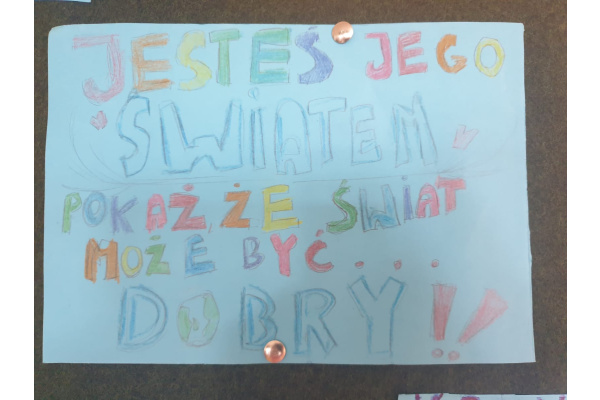 JESTEŚ JEGO
ŚWIATEM
POKAŻ, ŻE ŚWIAT
MOŻE BYĆ . . . .
DOBRY!!